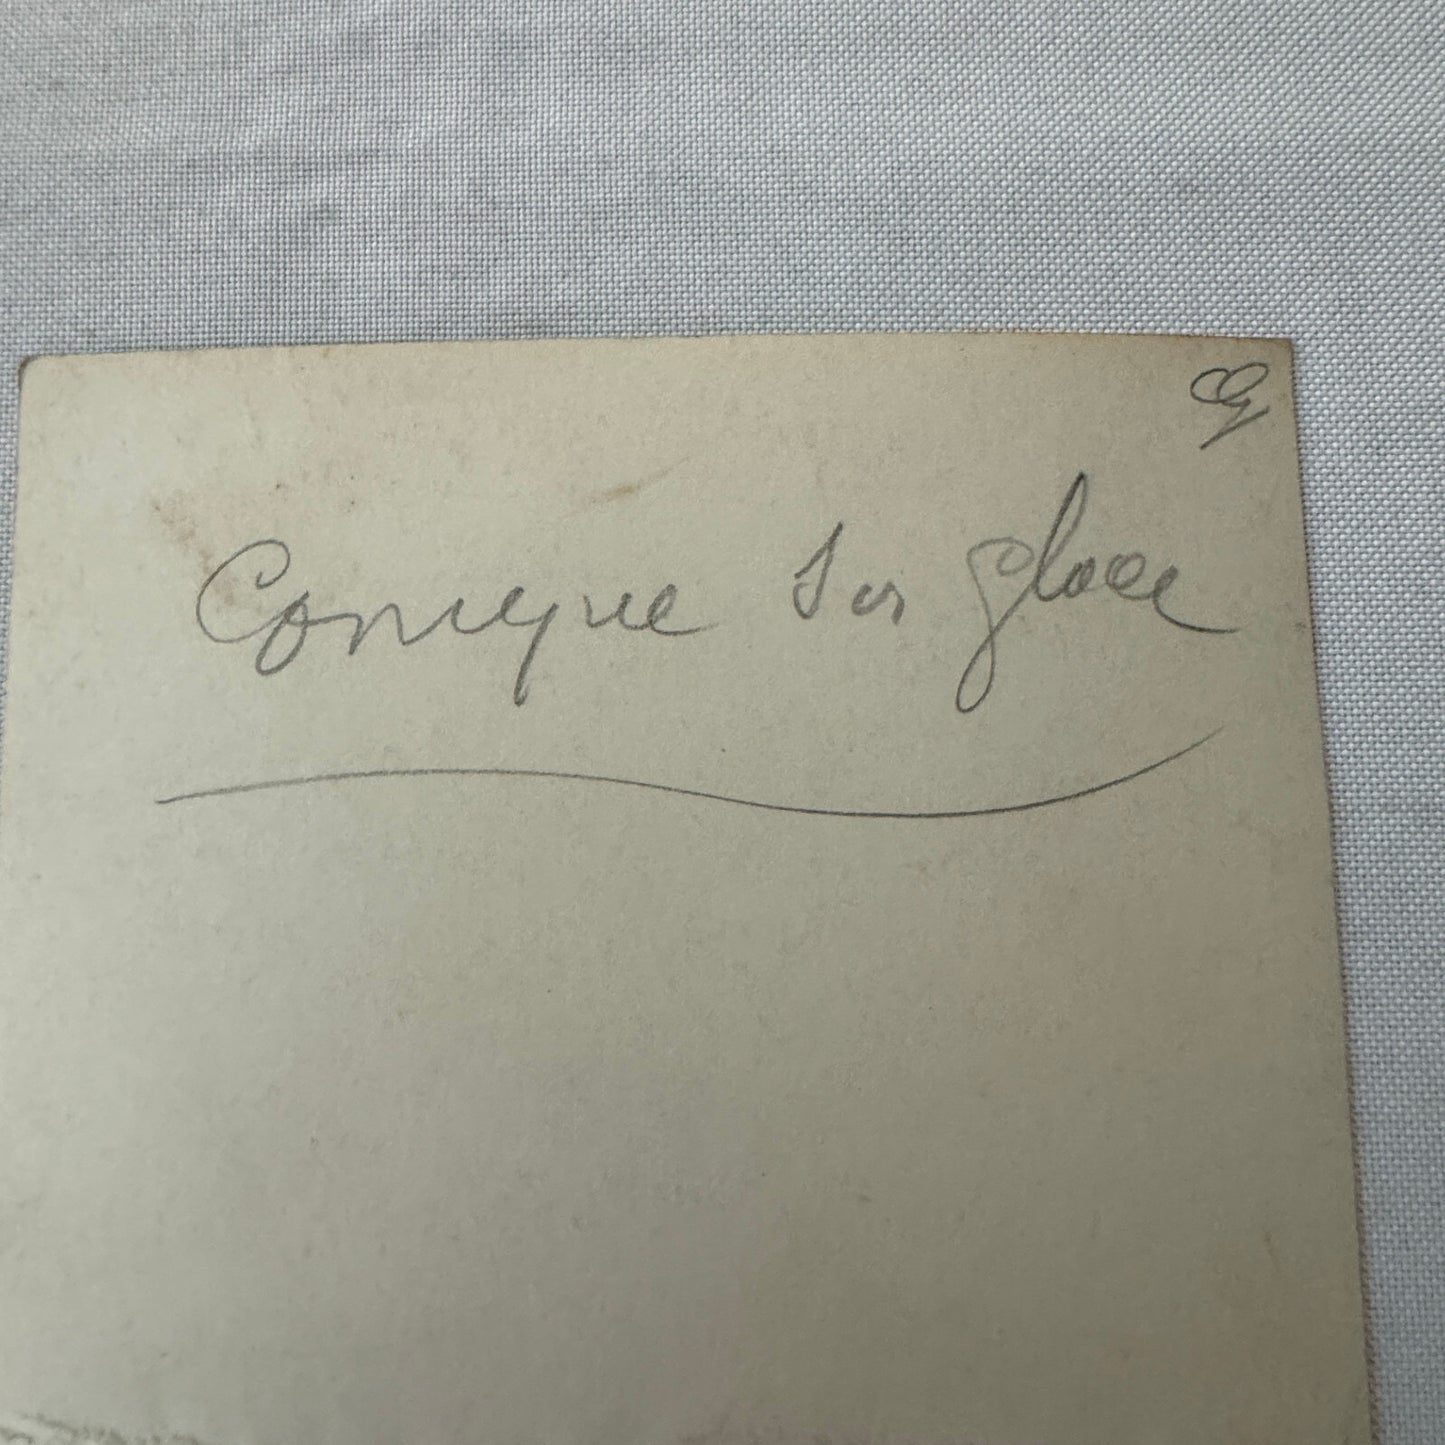 Comique sur glace